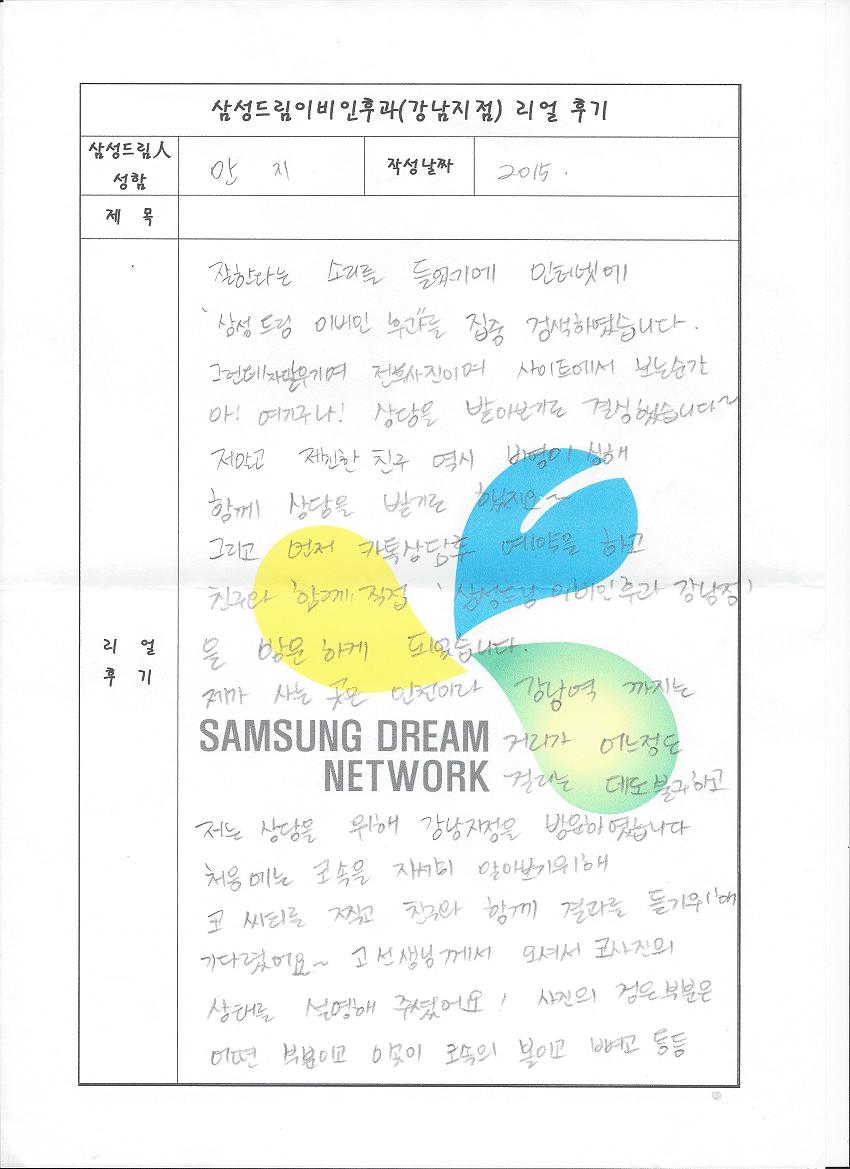 삼성드림이비인후과(강남지점) 리얼 후기
삼성드림人
성함
안 지
작성날짜
2015.
제 목
잘한다는 소리를 들었기에 인터넷에
'삼성드림 이비인후과'를 집중 검색하였습니다.
그런데 전후사진이며 사이트에서 보는순간
아! 여기구나! 상담을 받아보기로 결심했습니다~
저말고 제친한 친구 역시 비염이 심해
함께 상담을 받기로 했지요~
그리고 먼저 카톡상담후 예약을 하고
친구와 함께 직접 '삼성드림 이비인후과 강남점'
을 방문하게 되었습니다.
제가 사는 곳은 인천이라 강남역 까지는
SAMSUNG DREAM
NETWORK
거리가 어느정도
걸리는 데도불구하고
리 얼
후 기
저는 상담을 위해 강남지점을 방문하였습니다
처음에는 코속을 자세히 알아보기위해
코 씨티를 찍고 친구와 함께 결과를 듣기위해
기다렸어요~ 고선생님께서 오셔서 코사진의
상태를 설명해 주셨어요! 사진의 검은부분은
어떤 부분이고 이곳이 코속의 볼이고 뼈고 등등